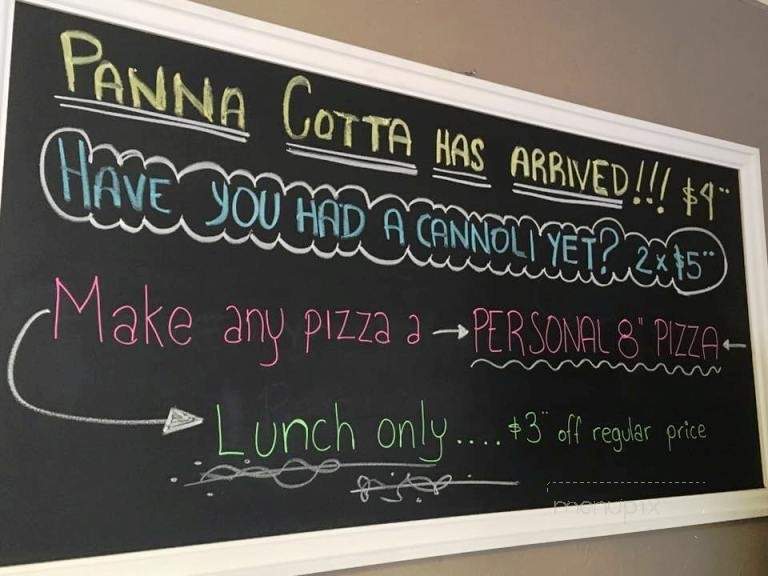 PANNA COTTA HAS ARRIVED!!! $4¨
HAVE YOU HAD A CANNOLI YET? 2 x $5¨
Make any pizza a → PERSONAL 8" PIZZA ←
Lunch only.... $3¨ off regular price
menupix